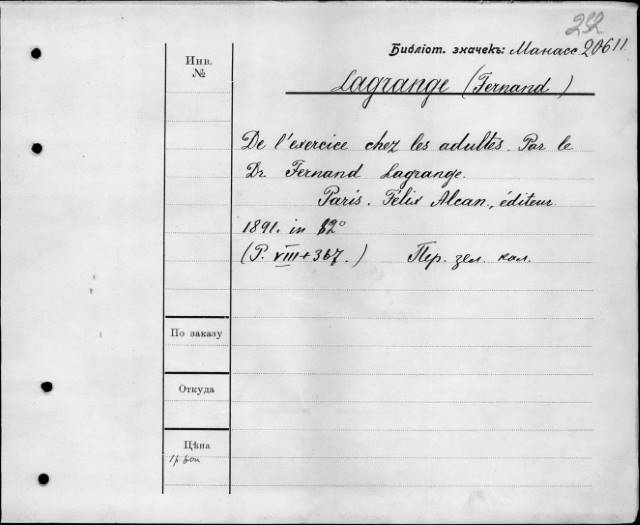 252
Библіот. значекъ: Манасс. 20611
Инв.
№
Lagrange (Fernand)
De l'exercice chez les adultes. Par le
Dr. Fernand Lagrange.
Paris. Félix Alcan, éditeur
1891. in 12°
(P. VIII + 367.) Пер. зел. кол.
По заказу
Откуда
Цѣна
1 р.